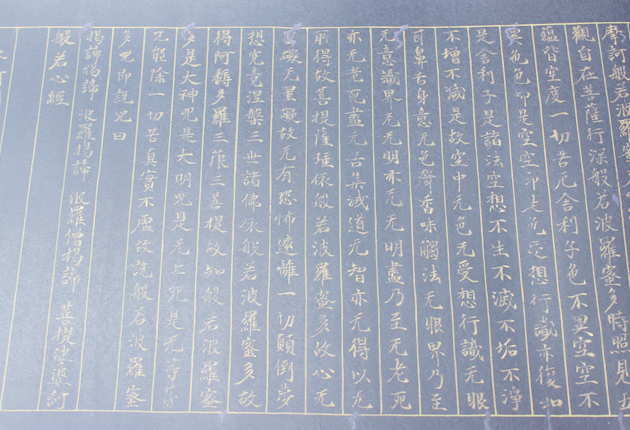 摩訶般若波羅蜜多心
觀自在菩薩行深般若波羅蜜多時照見五
蘊皆空度一切苦厄舍利子色不異空空不
異色色即是空空即是色受想行識亦復如
是舍利子是諸法空想不生不滅不垢不淨
不增不減是故空中无色无受想行識无眼
耳鼻舌身意无色聲香味觸法无眼界乃至
无意識界无无明亦无无明盡乃至无老死
亦无老死盡无苦集滅道无智亦无得以无
所得故菩提薩埵依般若波羅蜜多故心无
罣礙无罣礙故无有恐怖遠離一切顛倒夢
想究竟涅槃三世諸佛依般若波羅蜜多故
得阿耨多羅三藐三菩提故知般若波羅蜜
多是大神咒是大明咒是无上咒是无等等
咒能除一切苦真實不虛故說般若波羅蜜
多咒即說咒曰
揭諦揭諦 波羅揭諦 波羅僧揭諦 菩提薩婆訶
般若心經